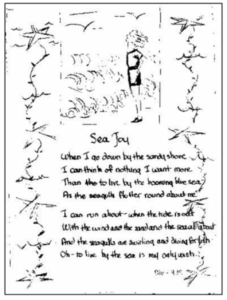 Sea Joy
When I go down by the sandy shore
I can think of nothing I want more
Than to live by the booming blue sea
As the seagulls flutter round about me
I can run about when the tide is out
With the wind and the sand and the sea all about
And the seagulls are swirling and diving for fish
Oh to live by the sea is my only wish.